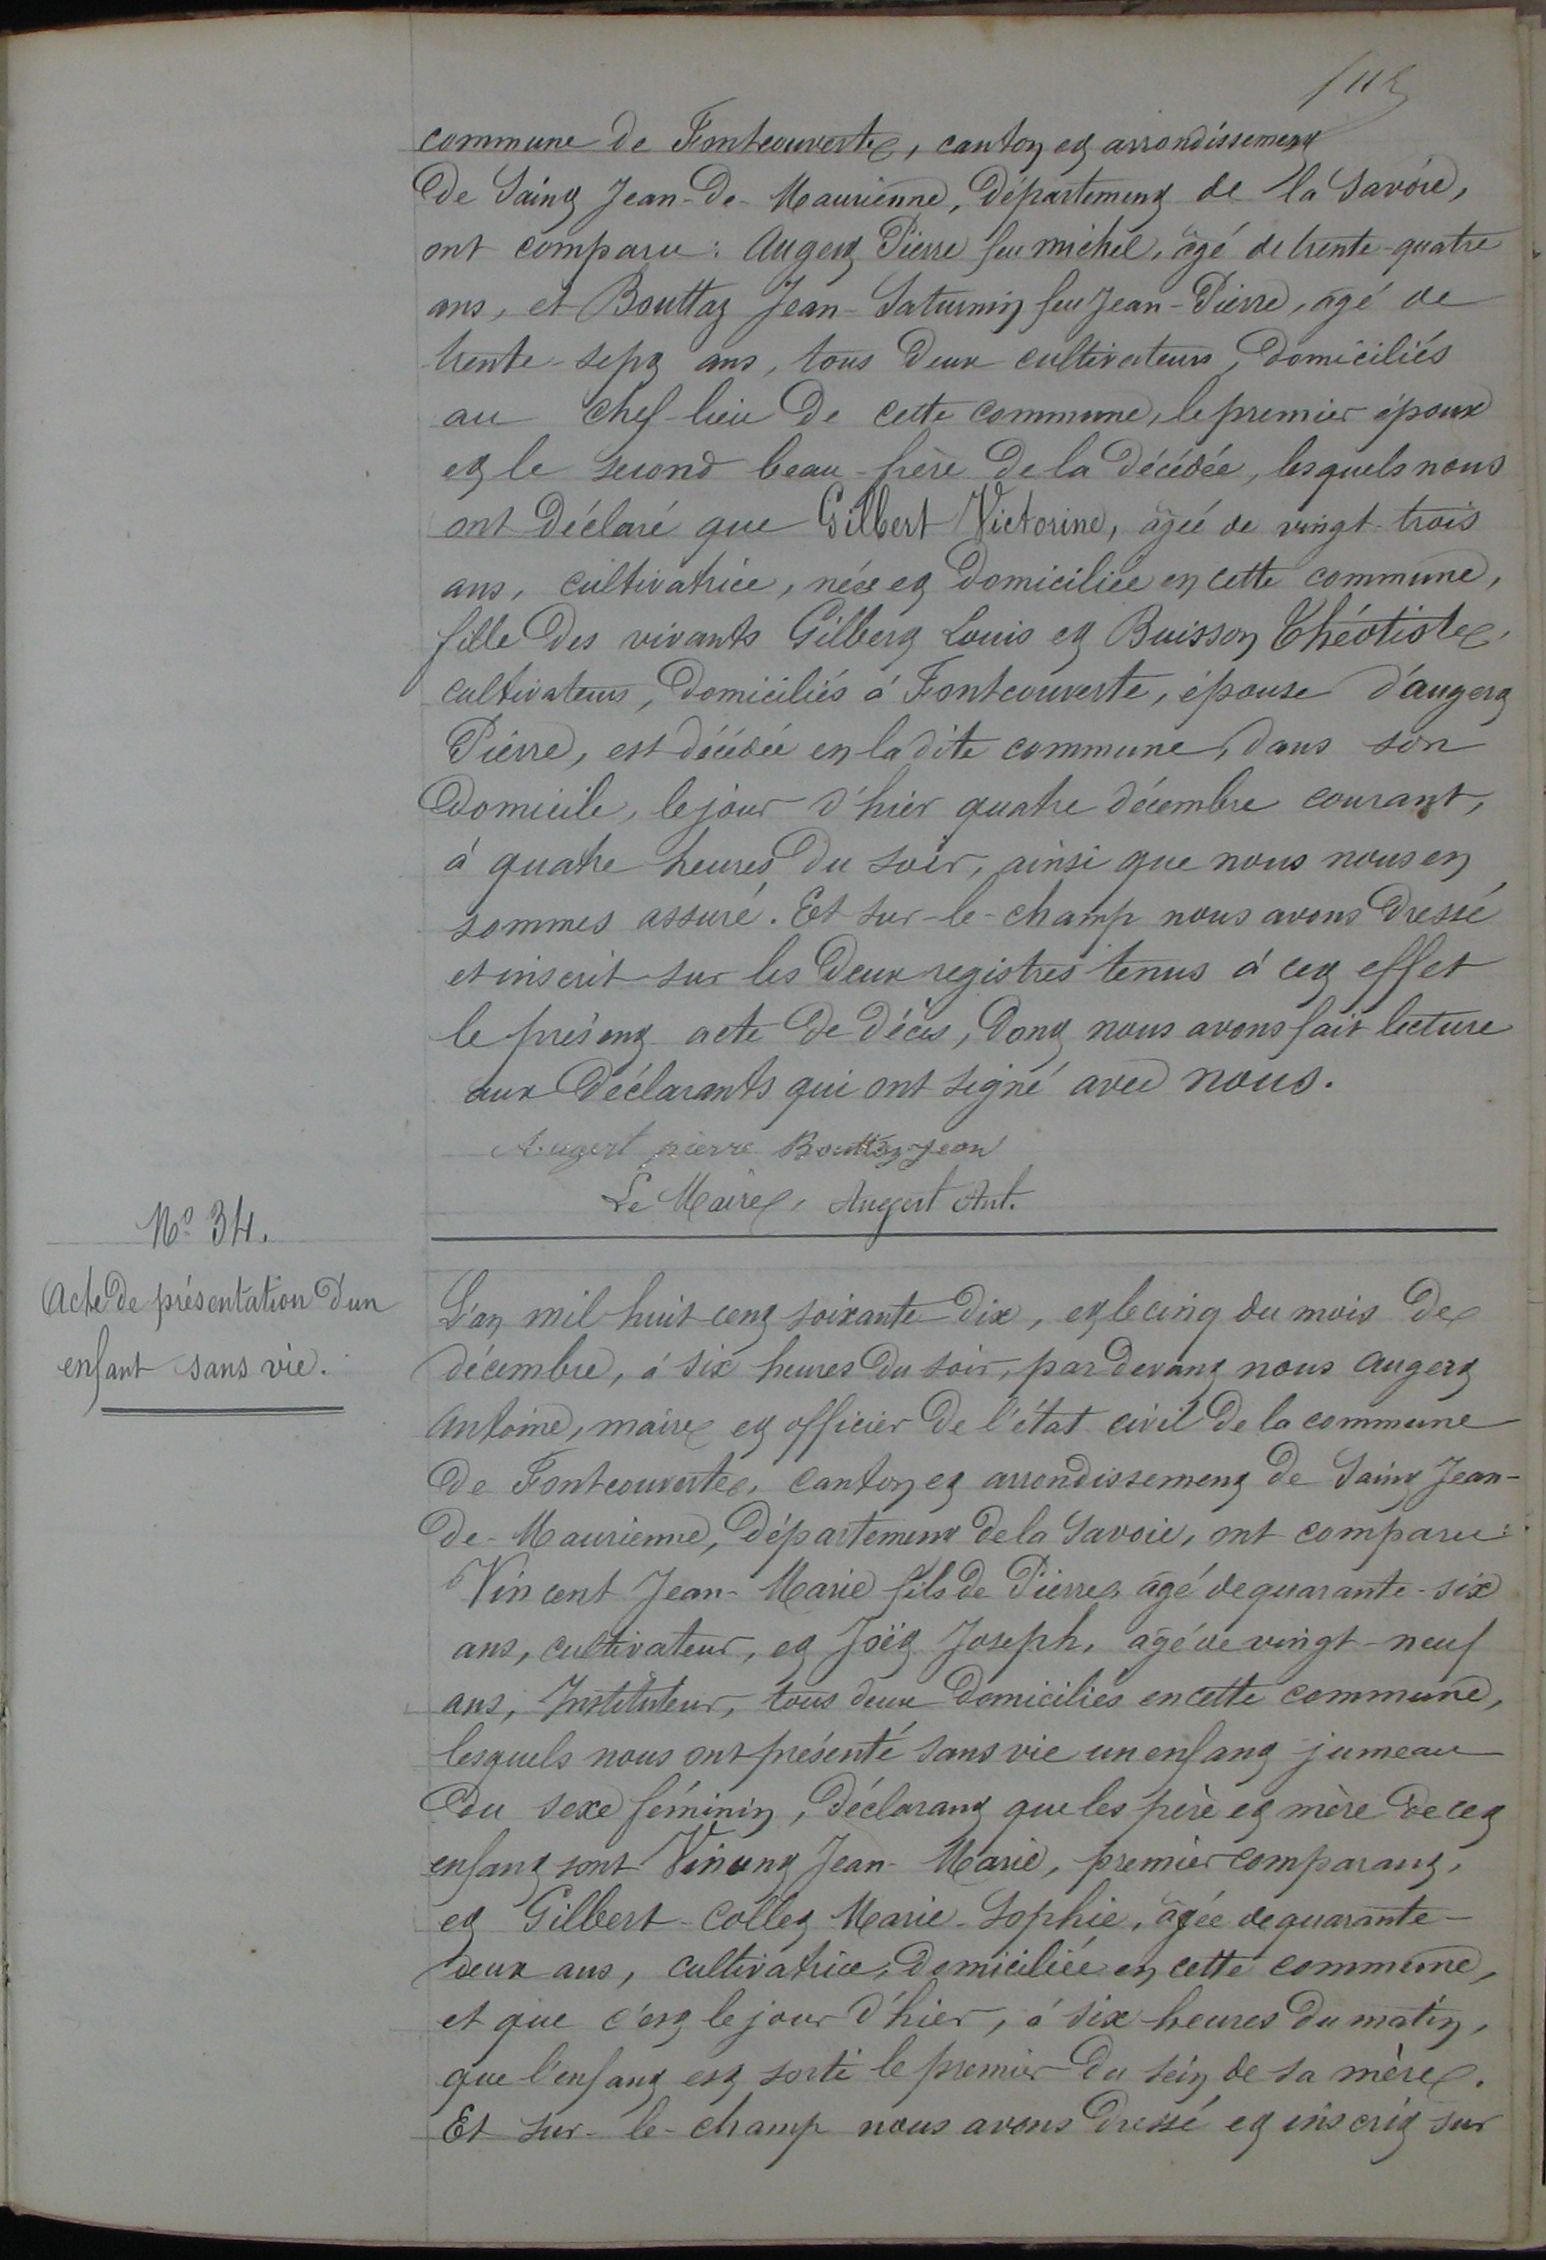 commune de Fontcouverte, canton et arrondissement
de Saint Jean-de-Maurienne, Département de la Savoie,
ont comparu: Augert Pierre feu michel, âgé de trente-quatre
ans, et Bouttaz Jean-Saturnin feu Jean-Pierre, âgé de
trente-sept ans, tous deux cultivateurs, domiciliés
au chef-lieu de cette commune, le premier époux
et le second beau-frère de la décédée, lesquels nous
ont déclaré que Gilbert Victorine, âgée de vingt-trois
ans, cultivatrice, née et domiciliée en cette commune,
fille des vivants Gilbert Louis et Buisson Théotiste,
cultivateurs, domiciliés à Fontcouverte, épouse d'augert
Pierre, est décédée en la dite commune, dans son
domicile, le jour d'hier quatre décembre courant,
à quatre heures du soir, ainsi que nous nous en
sommes assuré. Et sur-le-champ nous avons dressé
et inscrit sur les deux registres tenus à cet effet
le présent acte de décès, dont nous avons fait lecture
aux déclarants qui ont signé avec nous.
Augert pierre Bouttaz Jean
Le Maire, Augert Ant.
N° 34.
Acte de présentation d'un
enfant sans vie.
L'an mil huit cent soixante-dix, et le cinq du mois de
décembre, à six heures du soir, par devant nous Augert
Antoine, maire et officier de l'état civil de la commune
de Fontcouverte, canton et arrondissement de Saint Jean-
de-Maurienne, Département de la Savoie, ont comparu:
Vincent Jean-Marie fils de Pierre, âgé de quarante-six
ans, cultivateur, et Joët Joseph, âgé de vingt-neuf
ans, Instituteur, tous deux domiciliés en cette commune,
lesquels nous ont présenté sans vie un enfant jumeau
du sexe féminin, déclarant que les père et mère de cet
enfant sont Vincent Jean-Marie, premier comparant,
et Gilbert-Collet Marie-Sophie, âgée de quarante-
deux ans, cultivatrice, domiciliée en cette commune,
et que c'est le jour d'hier, à six heures du matin,
que l'enfant est sorti le premier du sein de sa mère.
Et sur-le-champ nous avons dressé et inscrit sur